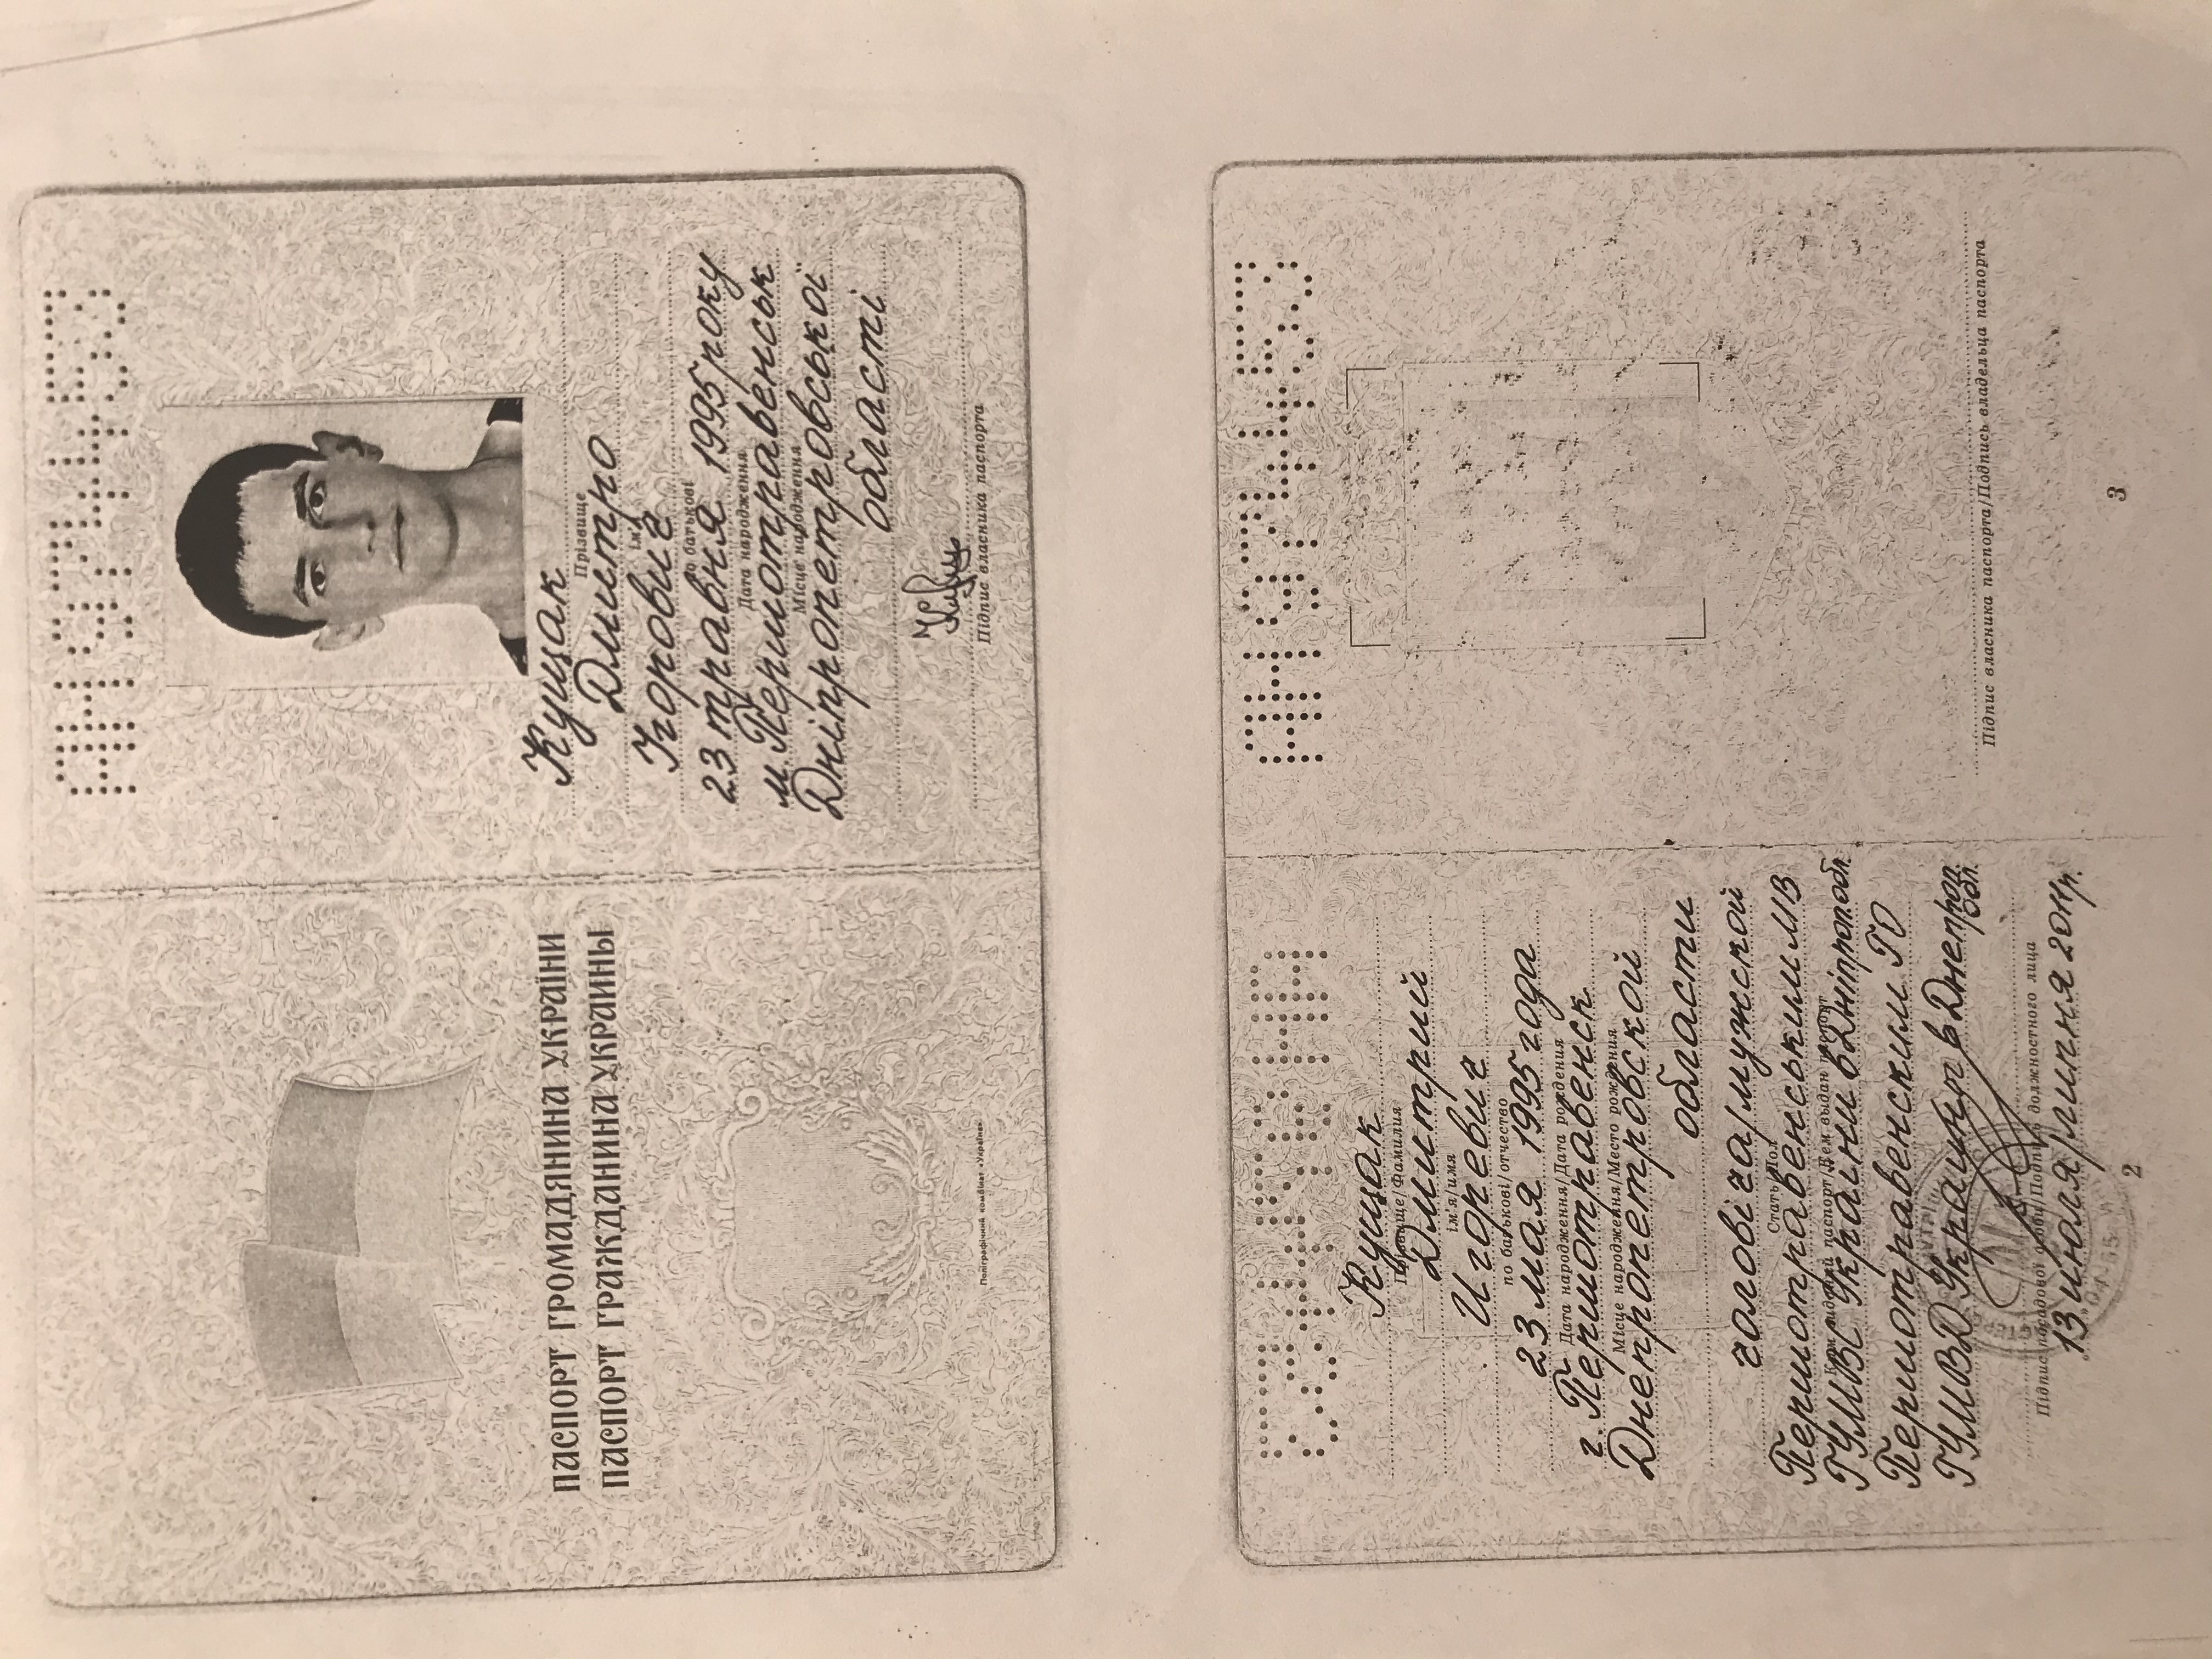 АН974453
ПАСПОРТ ГРОМАДЯНИНА УКРАЇНИ
ПАСПОРТ ГРАЖДАНИНА УКРАИНЫ
Поліграфічний комбінат «Україна»
Кущак
Прізвище
Дмитро
ім'я
Ігорович
по батькові
23 травня 1995 року
Дата народження
м. Першотравенськ
Місце народження
Дніпропетровської
області
Підпис власника паспорта
АН974453
Кущак
Прізвище/Фамилия
Дмитрий
ім'я/имя
Игоревич
по батькові/отчество
23 мая 1995 года
Дата народження/Дата рождения
г. Першотравенск
Місце народження/Место рождения
Днепропетровской
области
чоловіча/мужской
Стать/Пол
Першотравенським МВ
Ким виданий паспорт/Кем выдан паспорт
ГУМВС України в Дніпроп.обл.
Першотравенским ГО
ГУМВД Украины в Днепроп.
обл.
Підпис посадової особи/Подпись должностного лица
13 июля/липня 2011р.
2
АН974453
Підпис власника паспорта/Подпись владельца паспорта
3